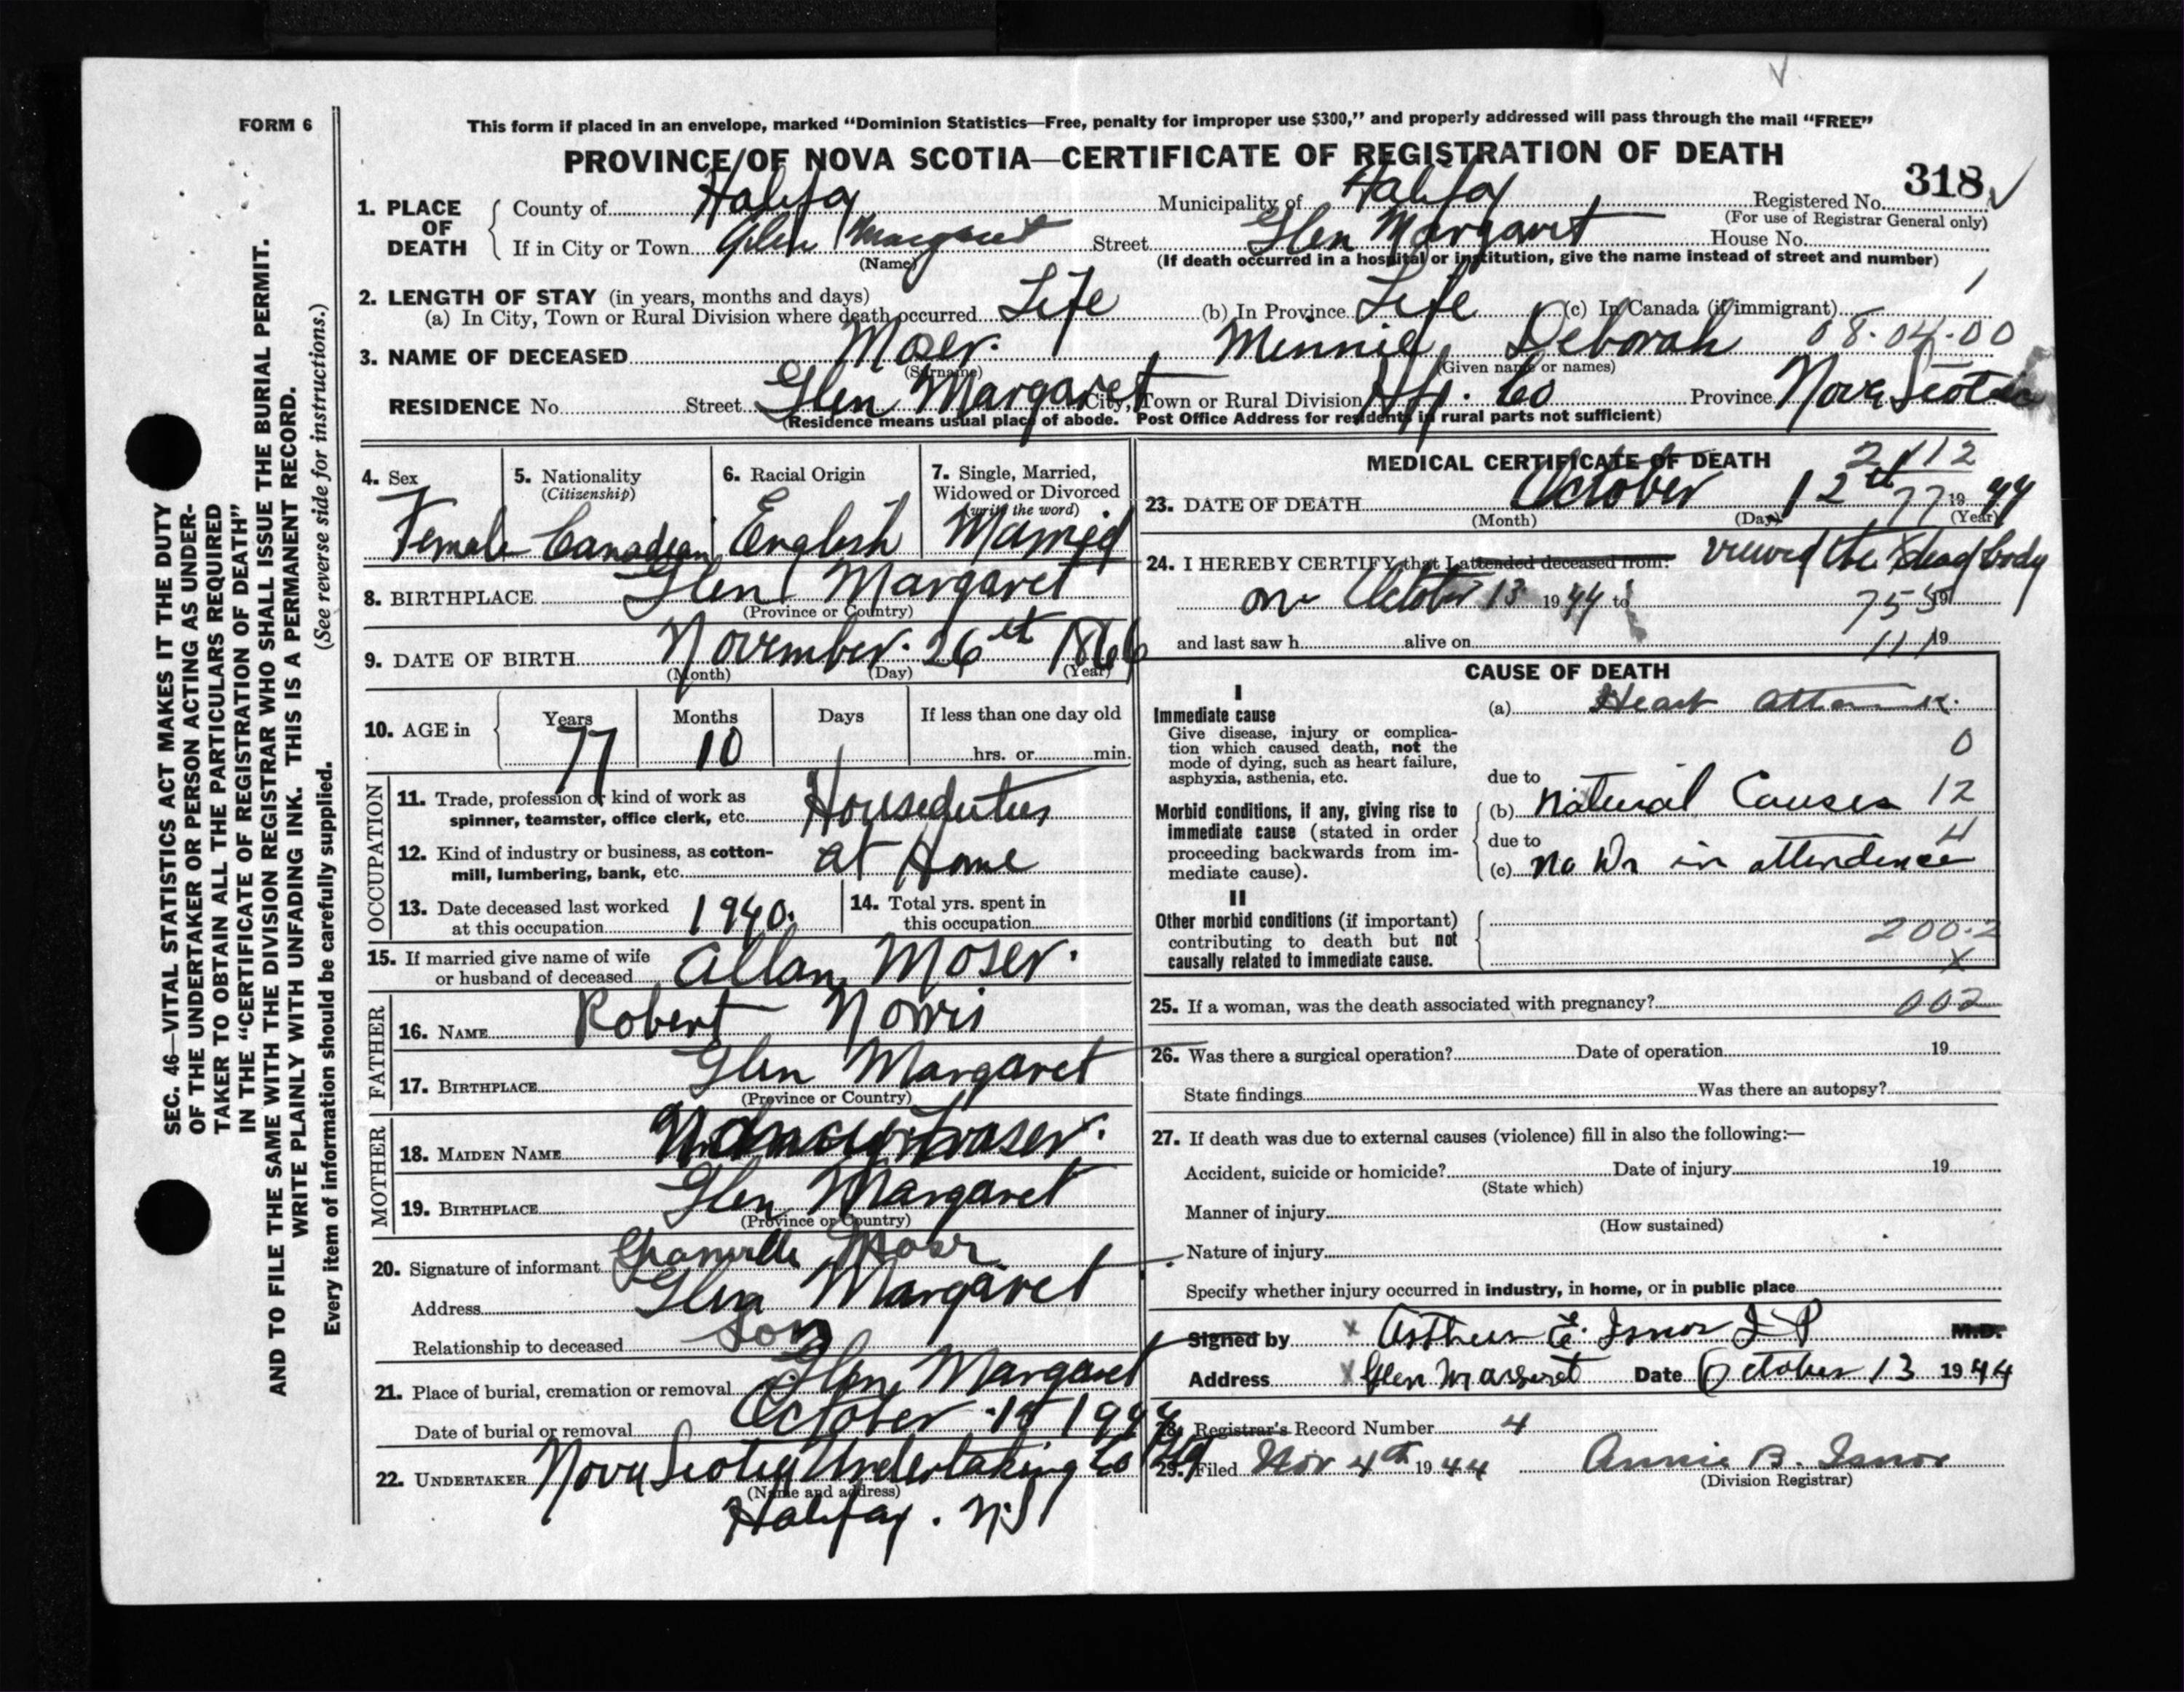 FORM 6
This form if placed in an envelope, marked "Dominion Statistics—Free, penalty for improper use $300," and properly addressed will pass through the mail "FREE"
PROVINCE OF NOVA SCOTIA—CERTIFICATE OF REGISTRATION OF DEATH
318 ✓
1. PLACE OF DEATH { County of Halifax Municipality of Halifax Registered No.
(For use of Registrar General only)
If in City or Town Glen Margaret Street Glen Margaret House No.
(Name) (If death occurred in a hospital or institution, give the name instead of street and number)
2. LENGTH OF STAY (in years, months and days) 1
(a) In City, Town or Rural Division where death occurred Life (b) In Province Life (c) In Canada (if immigrant)
3. NAME OF DECEASED Moser. Minnie Deborah 08-04-00
(Surname) (Given name or names)
RESIDENCE No. Street Glen Margaret City, Town or Rural Division Hfx. Co Province Nova Scotia
(Residence means usual place of abode. Post Office Address for residents in rural parts not sufficient)
4. Sex 5. Nationality (Citizenship) 6. Racial Origin 7. Single, Married, Widowed or Divorced (write the word)
Female Canadian English Married
8. BIRTHPLACE Glen Margaret
(Province or Country)
9. DATE OF BIRTH November. 26th 1866
(Month) (Day) (Year)
10. AGE in { Years Months Days If less than one day old
77 10 hrs. or min.
OCCUPATION
11. Trade, profession or kind of work as spinner, teamster, office clerk, etc. Houseduties
12. Kind of industry or business, as cotton-mill, lumbering, bank, etc. at Home
13. Date deceased last worked at this occupation 1940. 14. Total yrs. spent in this occupation
15. If married give name of wife or husband of deceased Allan Moser.
FATHER
16. NAME Robert Norris
17. BIRTHPLACE Glen Margaret
(Province or Country)
MOTHER
18. MAIDEN NAME Fraser.
19. BIRTHPLACE Glen Margaret
(Province or Country)
20. Signature of informant Granville Moser
Address Glen Margaret
Relationship to deceased Son
21. Place of burial, cremation or removal Glen Margaret
Date of burial or removal October 1944
22. UNDERTAKER Nova Scotia Undertaking Co Ltd
(Name and address)
Halifax. N.S
MEDICAL CERTIFICATE OF DEATH 2 112
23. DATE OF DEATH October 12th 77 1944
(Month) (Day) (Year)
24. I HEREBY CERTIFY that I attended deceased from: viewed the dead body
on October 13 1944 to 755 19
and last saw h alive on 111 19
CAUSE OF DEATH
I
Immediate cause
Give disease, injury or complication which caused death, not the mode of dying, such as heart failure, asphyxia, asthenia, etc.
(a) Heart attack.
0
due to
Morbid conditions, if any, giving rise to immediate cause (stated in order proceeding backwards from immediate cause).
(b) Natural Causes 12
due to 4
(c) No Dr in attendence
II
Other morbid conditions (if important) contributing to death but not causally related to immediate cause.
200.2
X
25. If a woman, was the death associated with pregnancy? 002
26. Was there a surgical operation? Date of operation 19
State findings Was there an autopsy?
27. If death was due to external causes (violence) fill in also the following:—
Accident, suicide or homicide? Date of injury 19
(State which)
Manner of injury
(How sustained)
Nature of injury
Specify whether injury occurred in industry, in home, or in public place
Signed by x Arthur E. Isnor J P M.D.
Address x Glen Margaret Date October 13 1944
28. Registrar's Record Number 4
29. Filed Nov 4th 1944 Annie B. Isnor
(Division Registrar)
SEC. 46—VITAL STATISTICS ACT MAKES IT THE DUTY
OF THE UNDERTAKER OR PERSON ACTING AS UNDER-
TAKER TO OBTAIN ALL THE PARTICULARS REQUIRED
IN THE "CERTIFICATE OF REGISTRATION OF DEATH"
AND TO FILE THE SAME WITH THE DIVISION REGISTRAR WHO SHALL ISSUE THE BURIAL PERMIT.
WRITE PLAINLY WITH UNFADING INK. THIS IS A PERMANENT RECORD.
Every item of information should be carefully supplied. (See reverse side for instructions.)